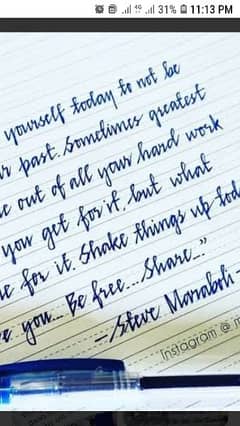 31% 11:13 PM
yourself today to not be
past. Sometimes greatest
out of all your hard work
you get for it, but what
for it. Shake things up
you... Be free... Share..."
- Steve Maraboli -
Instagram @